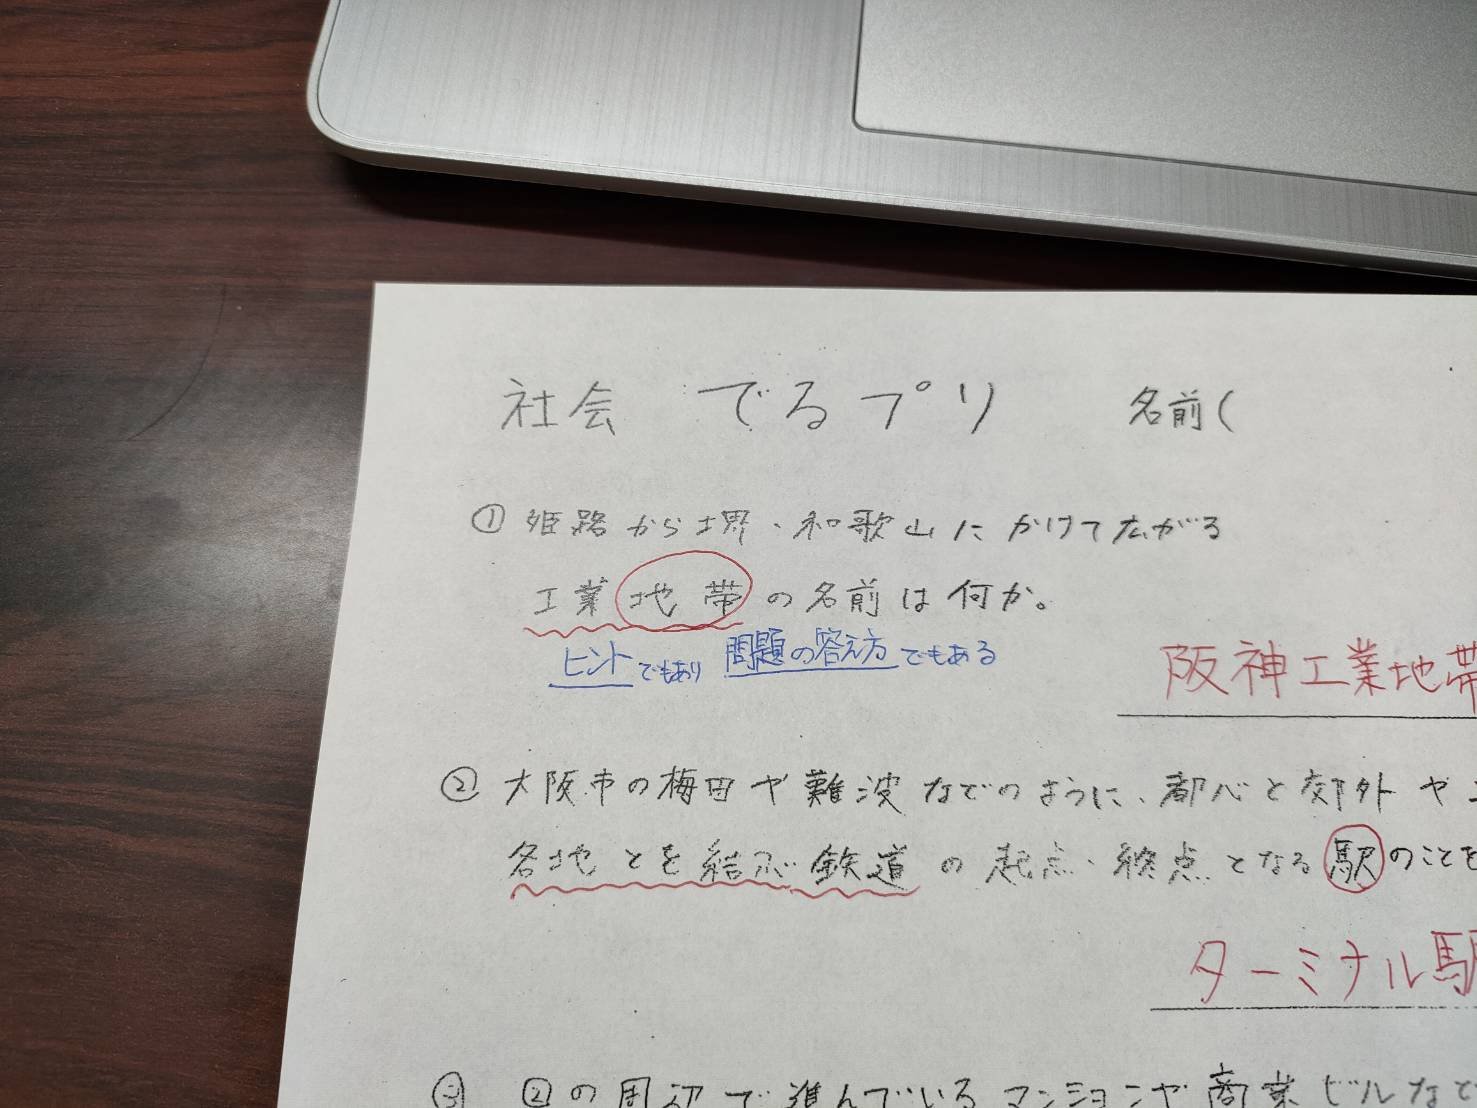 社会 でるプリ 名前(
① 姫路から堺・和歌山にかけて広がる
工業地帯の名前は何か。
ヒントでもあり 問題の答え方でもある
阪神工業地帯
② 大阪市の梅田や難波などのように、都心と郊外や
各地とを結ぶ鉄道の起点・終点となる駅のことを
ターミナル駅
③ ②の周辺で進んでいるマンションや商業ビルなど